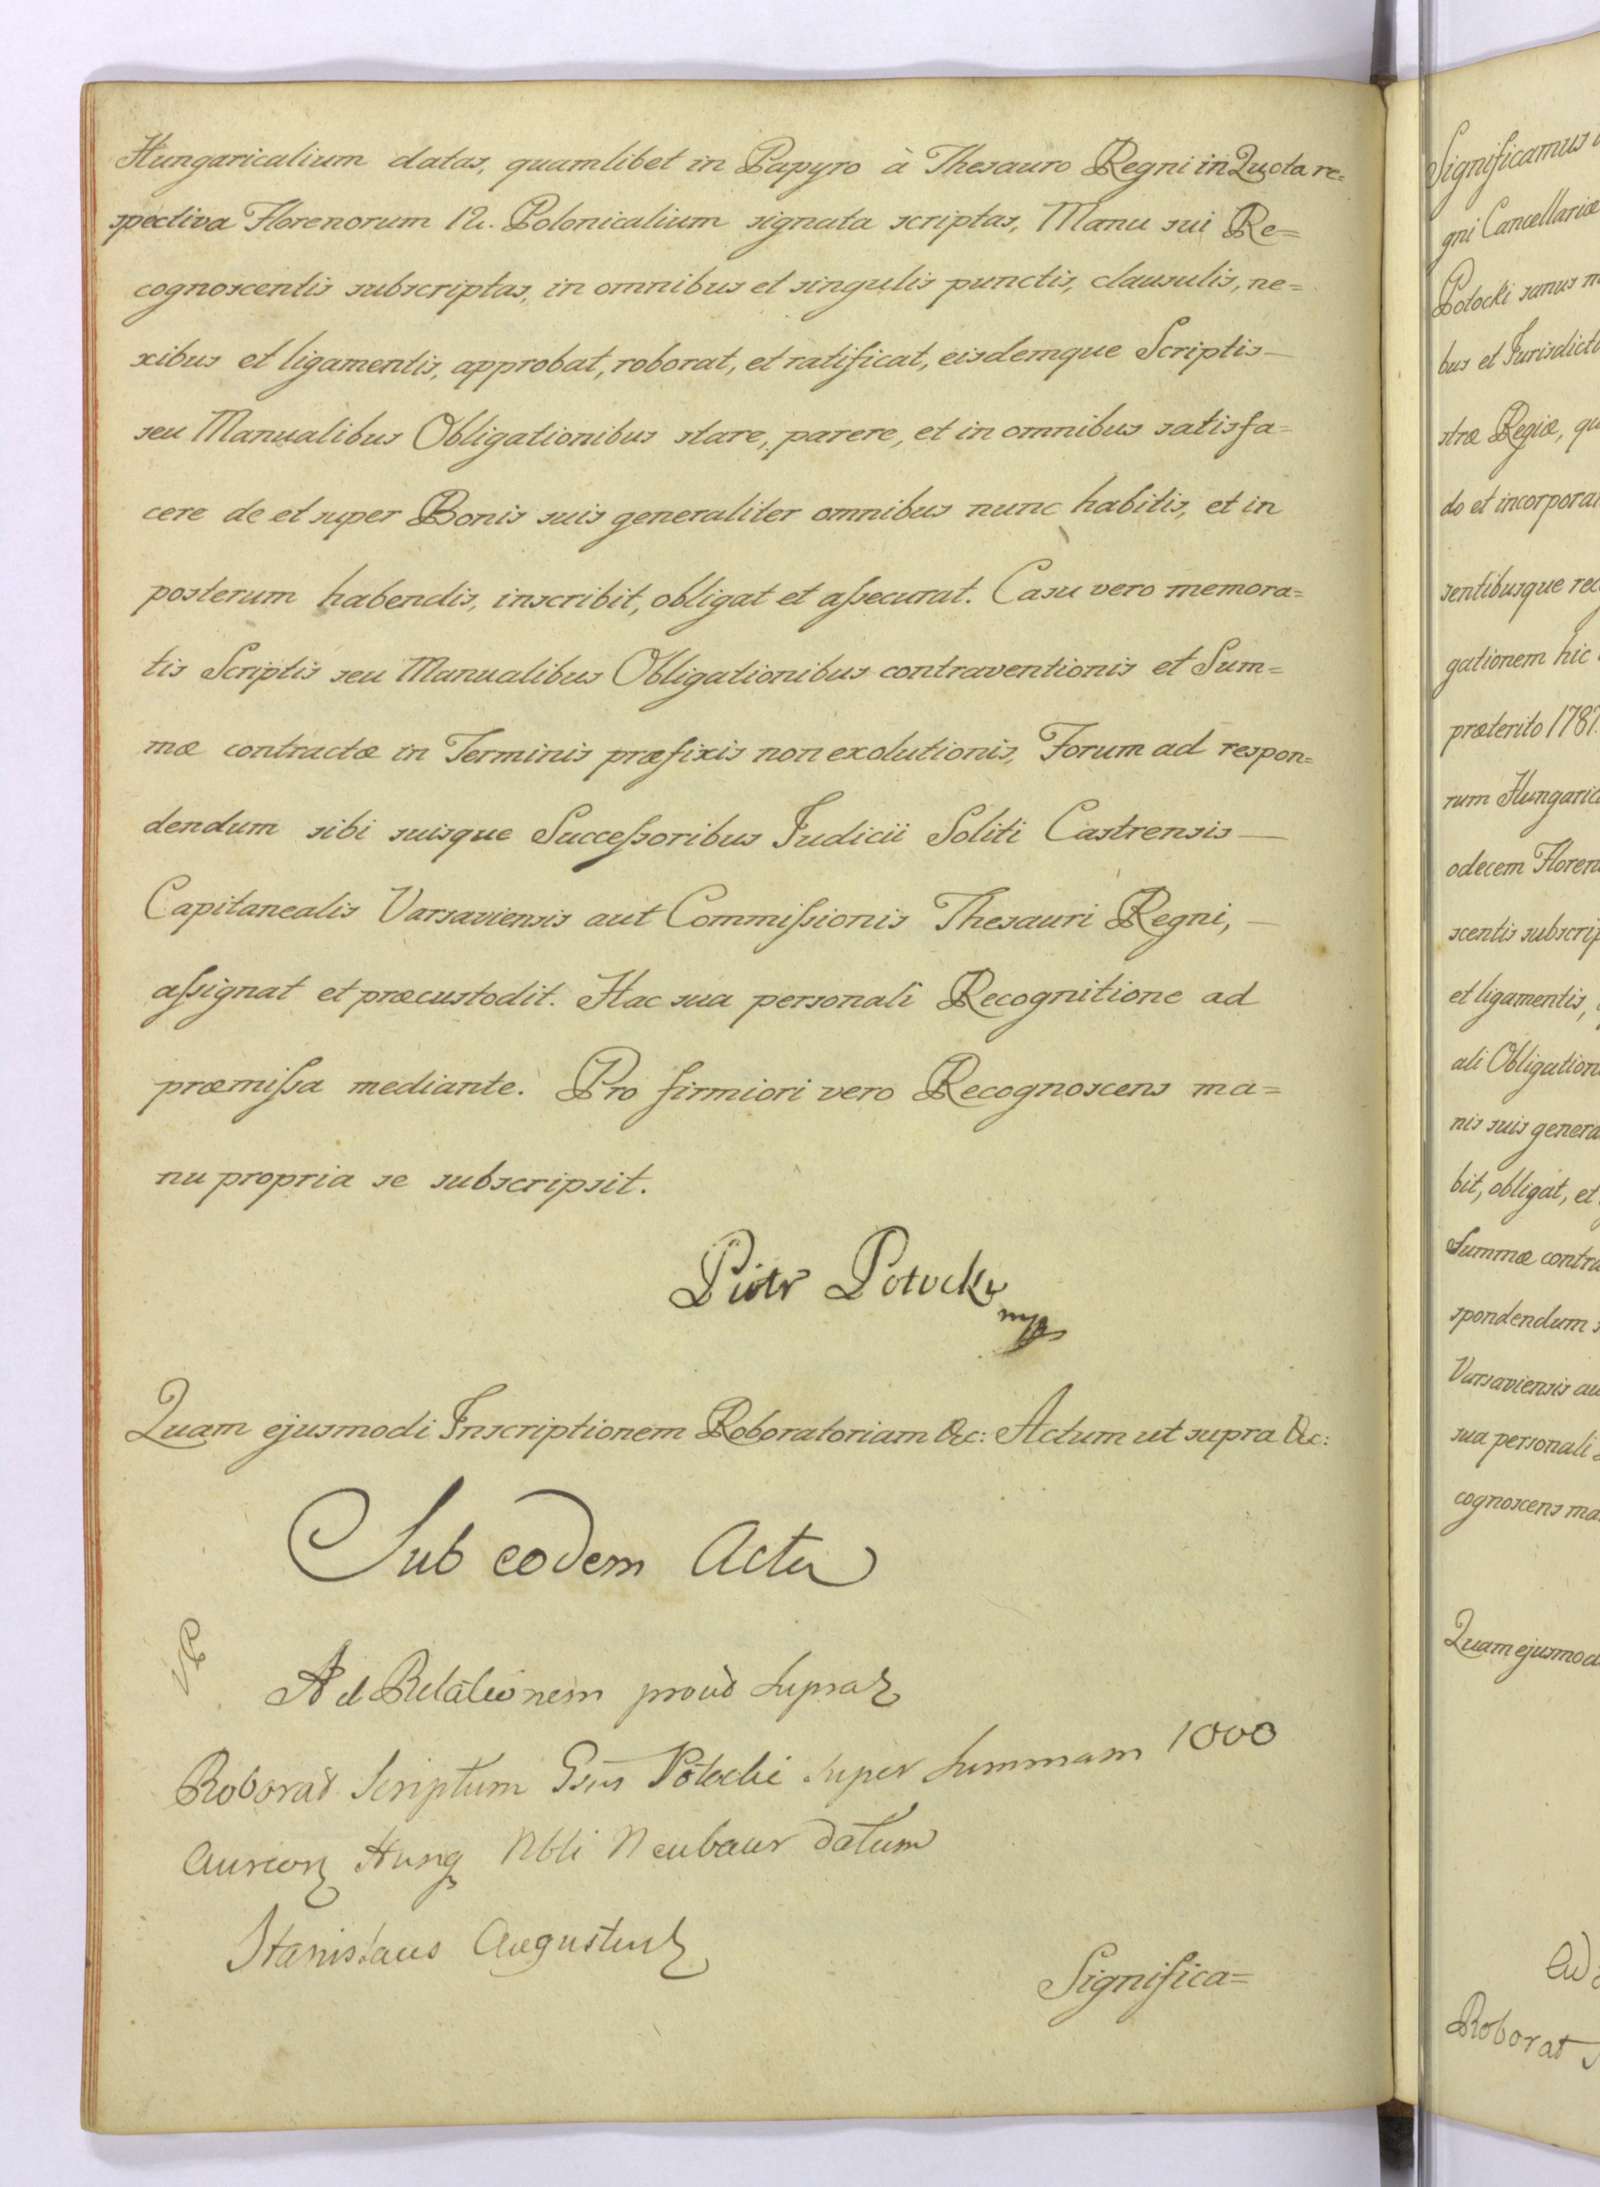 Hungaricalium datas, quamlibet in Papyro à Thesauro Regni in Quota re=
spectiva Florenorum 12. Polonicalium signata scriptas, Manu sui Re=
cognoscentis subscriptas, in omnibus et singulis punctis, clausulis, ne=
xibus et ligamentis, approbat, roborat, et ratificat, eisdemque Scriptis—
seu Manualibus Obligationibus stare, parere, et in omnibus satisfa=
cere de et super Bonis suis generaliter omnibus nunc habitis, et in
posterum habendis, inscribit, obligat et aſsecurat. Casu vero memora=
tis Scriptis seu Manualibus Obligationibus contraventionis et Sum=
mæ contractæ in Terminis præfixis non exolutionis, Forum ad respon=
dendum sibi suisque Succeſsoribus Judicii Soliti Castrensis—
Capitanealis Varsaviensis aut Commiſsionis Thesauri Regni,—
aſsignat et præcustodit. Hac sua personali Recognitione ad
præmiſsa mediante. Pro firmiori vero Recognoscens ma=
nu propria se subscripsit.
Piotr Potocki
mp
Quam ejusmodi Inscriptionem Roboratoriam &c: Actum ut supra &c:
Sub eodem Actu
Ad Relationem prout supra
Roborat Scriptum Potocki super summam 1000
Hung Nbli Neubaur datum
Stanislaus
Significa=
Significamus
gni Cancellariæ
Potocki sanus
bus et Jurisdict
stræ Regiæ, qu
do et incorpora
sentibusque rec
gationem hic
præterito 1787
rum Hungaric
odecem Floren
scentis subscrip
et ligamentis,
ali Obligation
nis suis genera
bit, obligat, et
Summæ contra
spondendum s
Varsaviensis au
sua personali
cognoscens ma
Quam ejusmod
Ad
Roborat